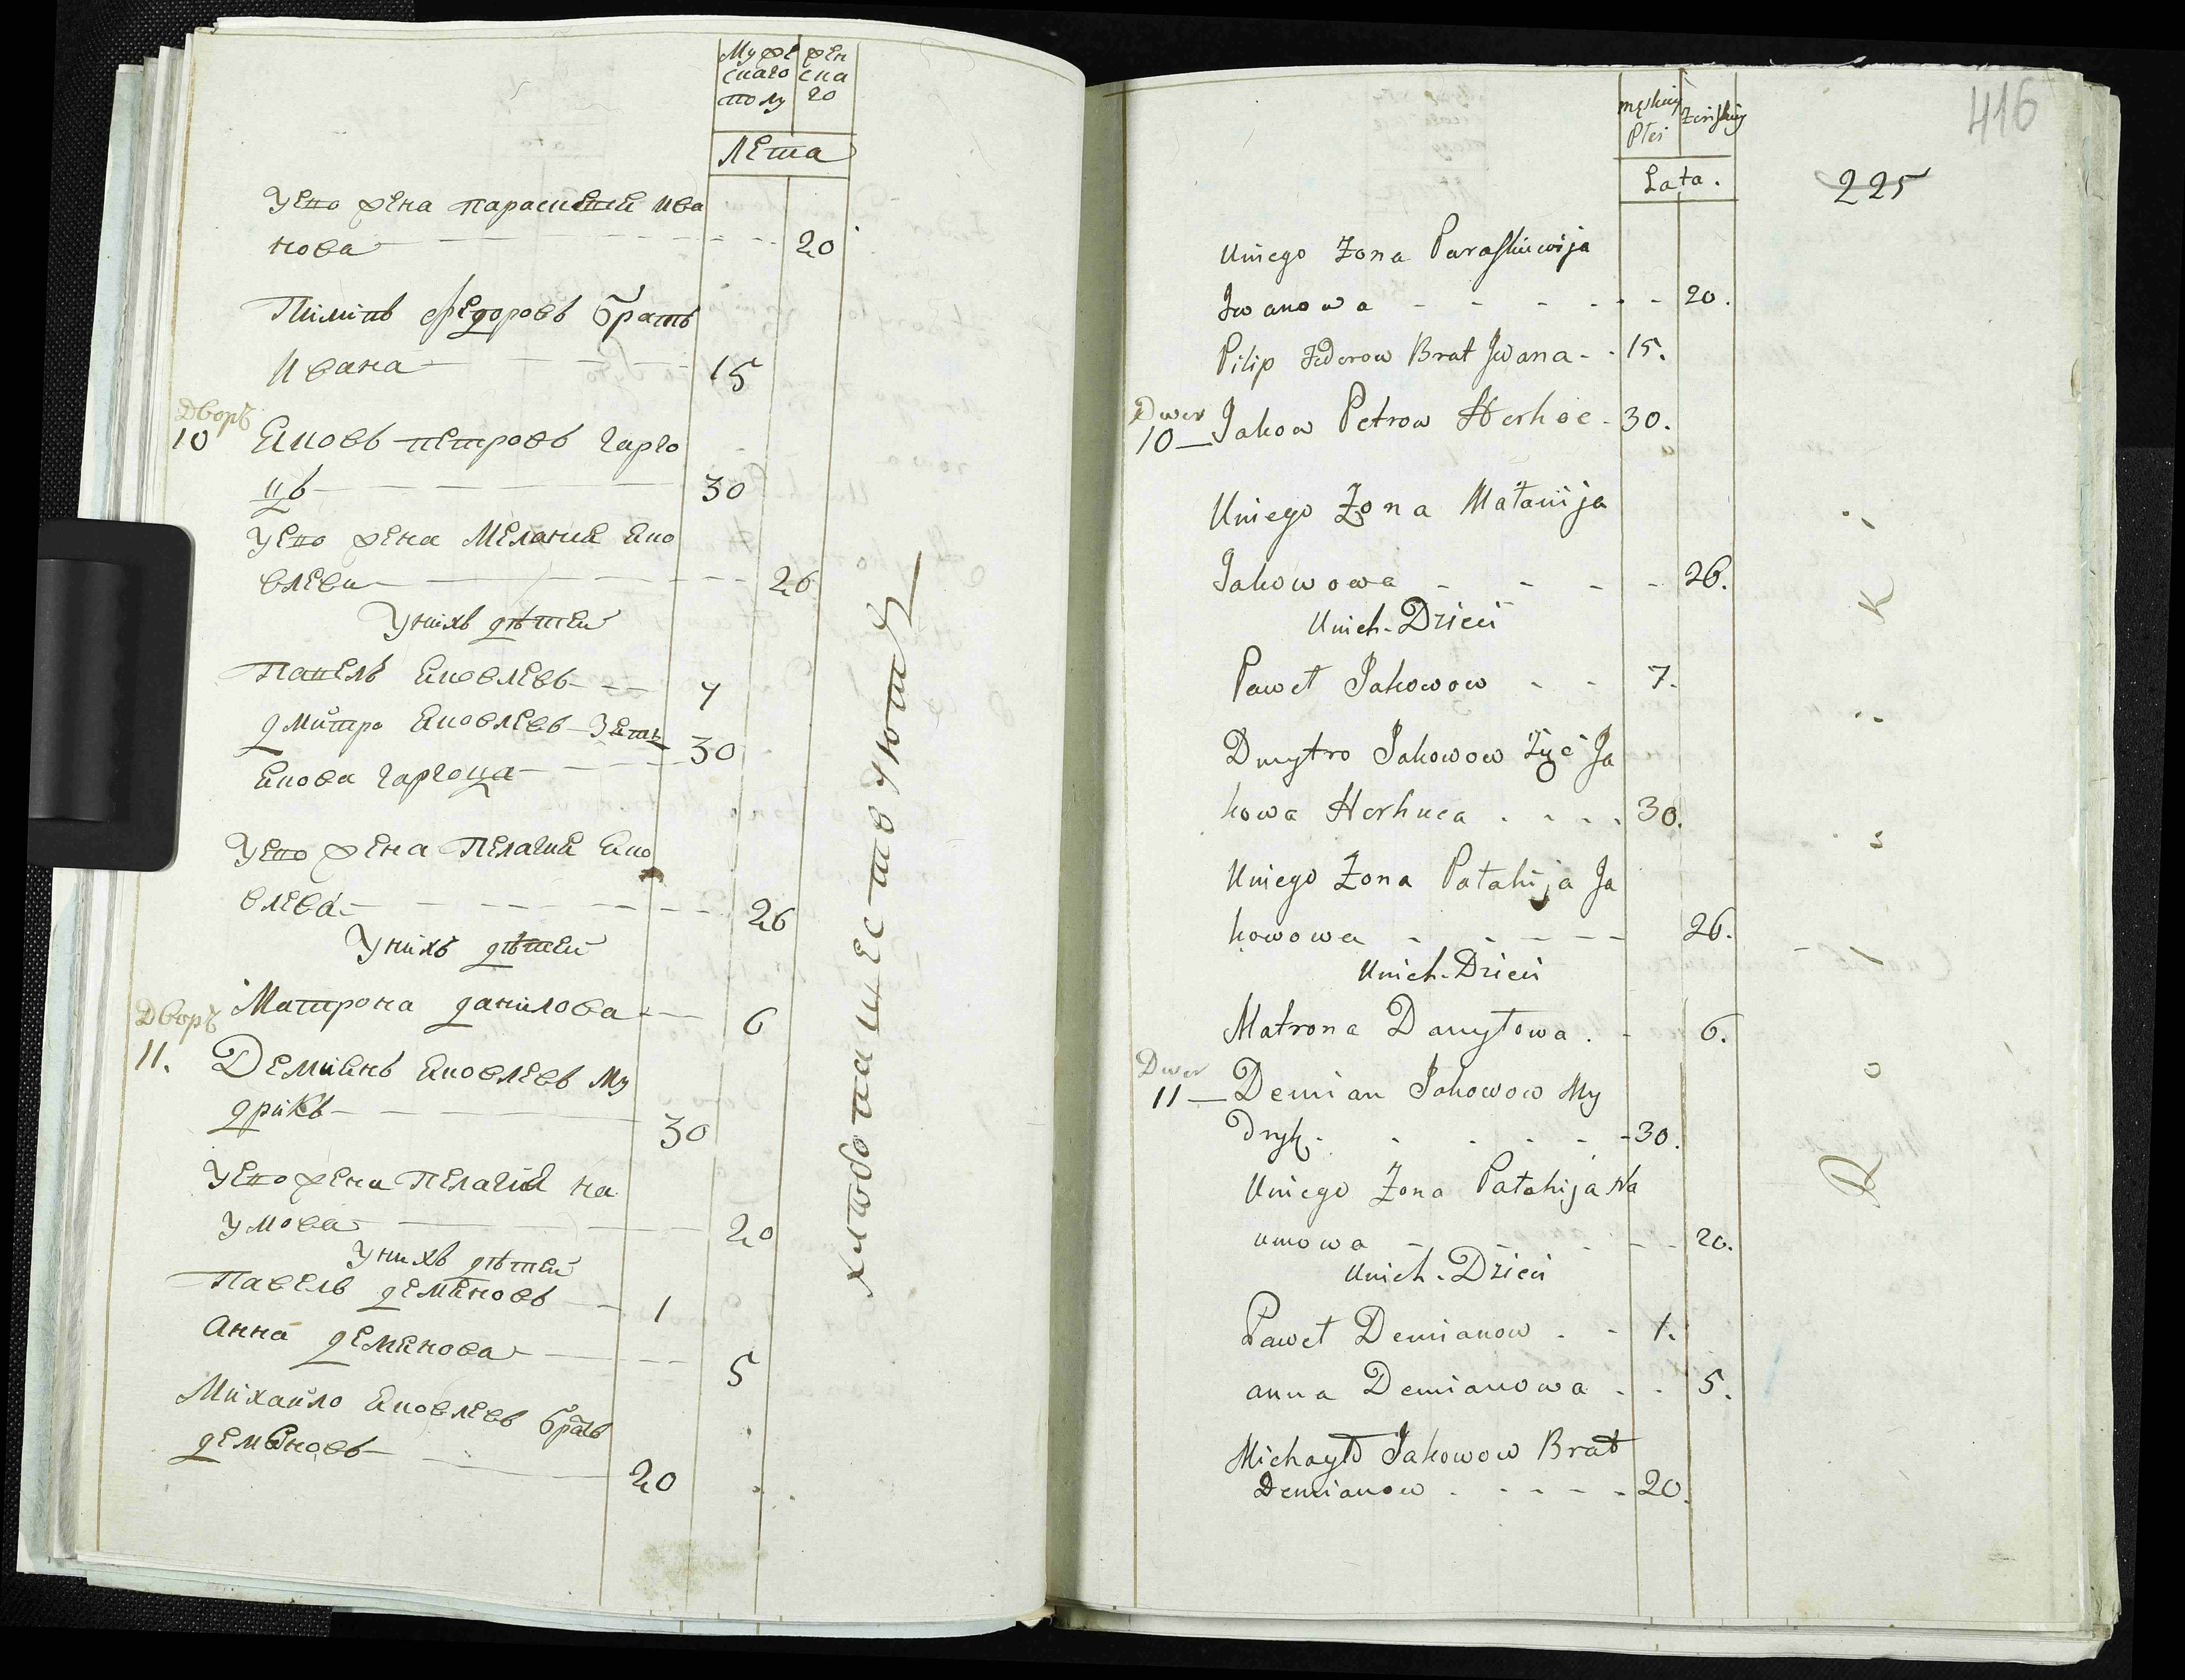 Муже
скаго
полу
жен
ска
го
Лета
У его жена параскевия ива
нова 20
Пилипъ федоровъ братъ
Ивана 15
Дворъ
10 Яковъ петровъ гарго
цъ 30
У его жена Мелания Яко
влева 26
У нихъ дѣтей
Павелъ Яковлевъ 7
дмитро Яковлевъ Зеть 30
Якова гаргоца
У его жена Пелагия Яко
влева 26
У нихъ дѣтей
Матрона данилова 6
Дворъ
11. Демиянъ Яковлевъ Му
дрикъ 30
У его жена Пелагия на
умова 20
У нихъ дѣтей
Павелъ демяновъ 1
Анна демянова 5
Михайло Яковлевъ братъ
демяновъ 20
416
225
męskiey
Płci
żeńskiey
Lata.
Uniego Zona Paraskiewija
Iwanowa - - - - - 20.
Pilip Fedorow Brat Iwana - - 15.
Dwor
10 — Jakow Petrow Herhoc - 30.
Uniego Zona Małanija
Jakowowa - - - - 26.
Unich Dzieci
Paweł Jakowow - - 7.
Dmytro Jakowow Zięć Ja
kowa Herhuca . - - . 30.
Uniego Zona Pałahija Ja
kowowa - - - - - 26.
Unich Dzieci
Matrona Danyłowa . - 6.
Dwor
11 — Demian Jakowow My
dryk - - - - - 30.
Uniego Zona Pałahija Na
umowa - - - - - 20.
Unich Dzieci
Paweł Demianow . - 1.
anna Demianowa . . 5.
Michayło Jakowow Brat
Demianow . - - - - 20.